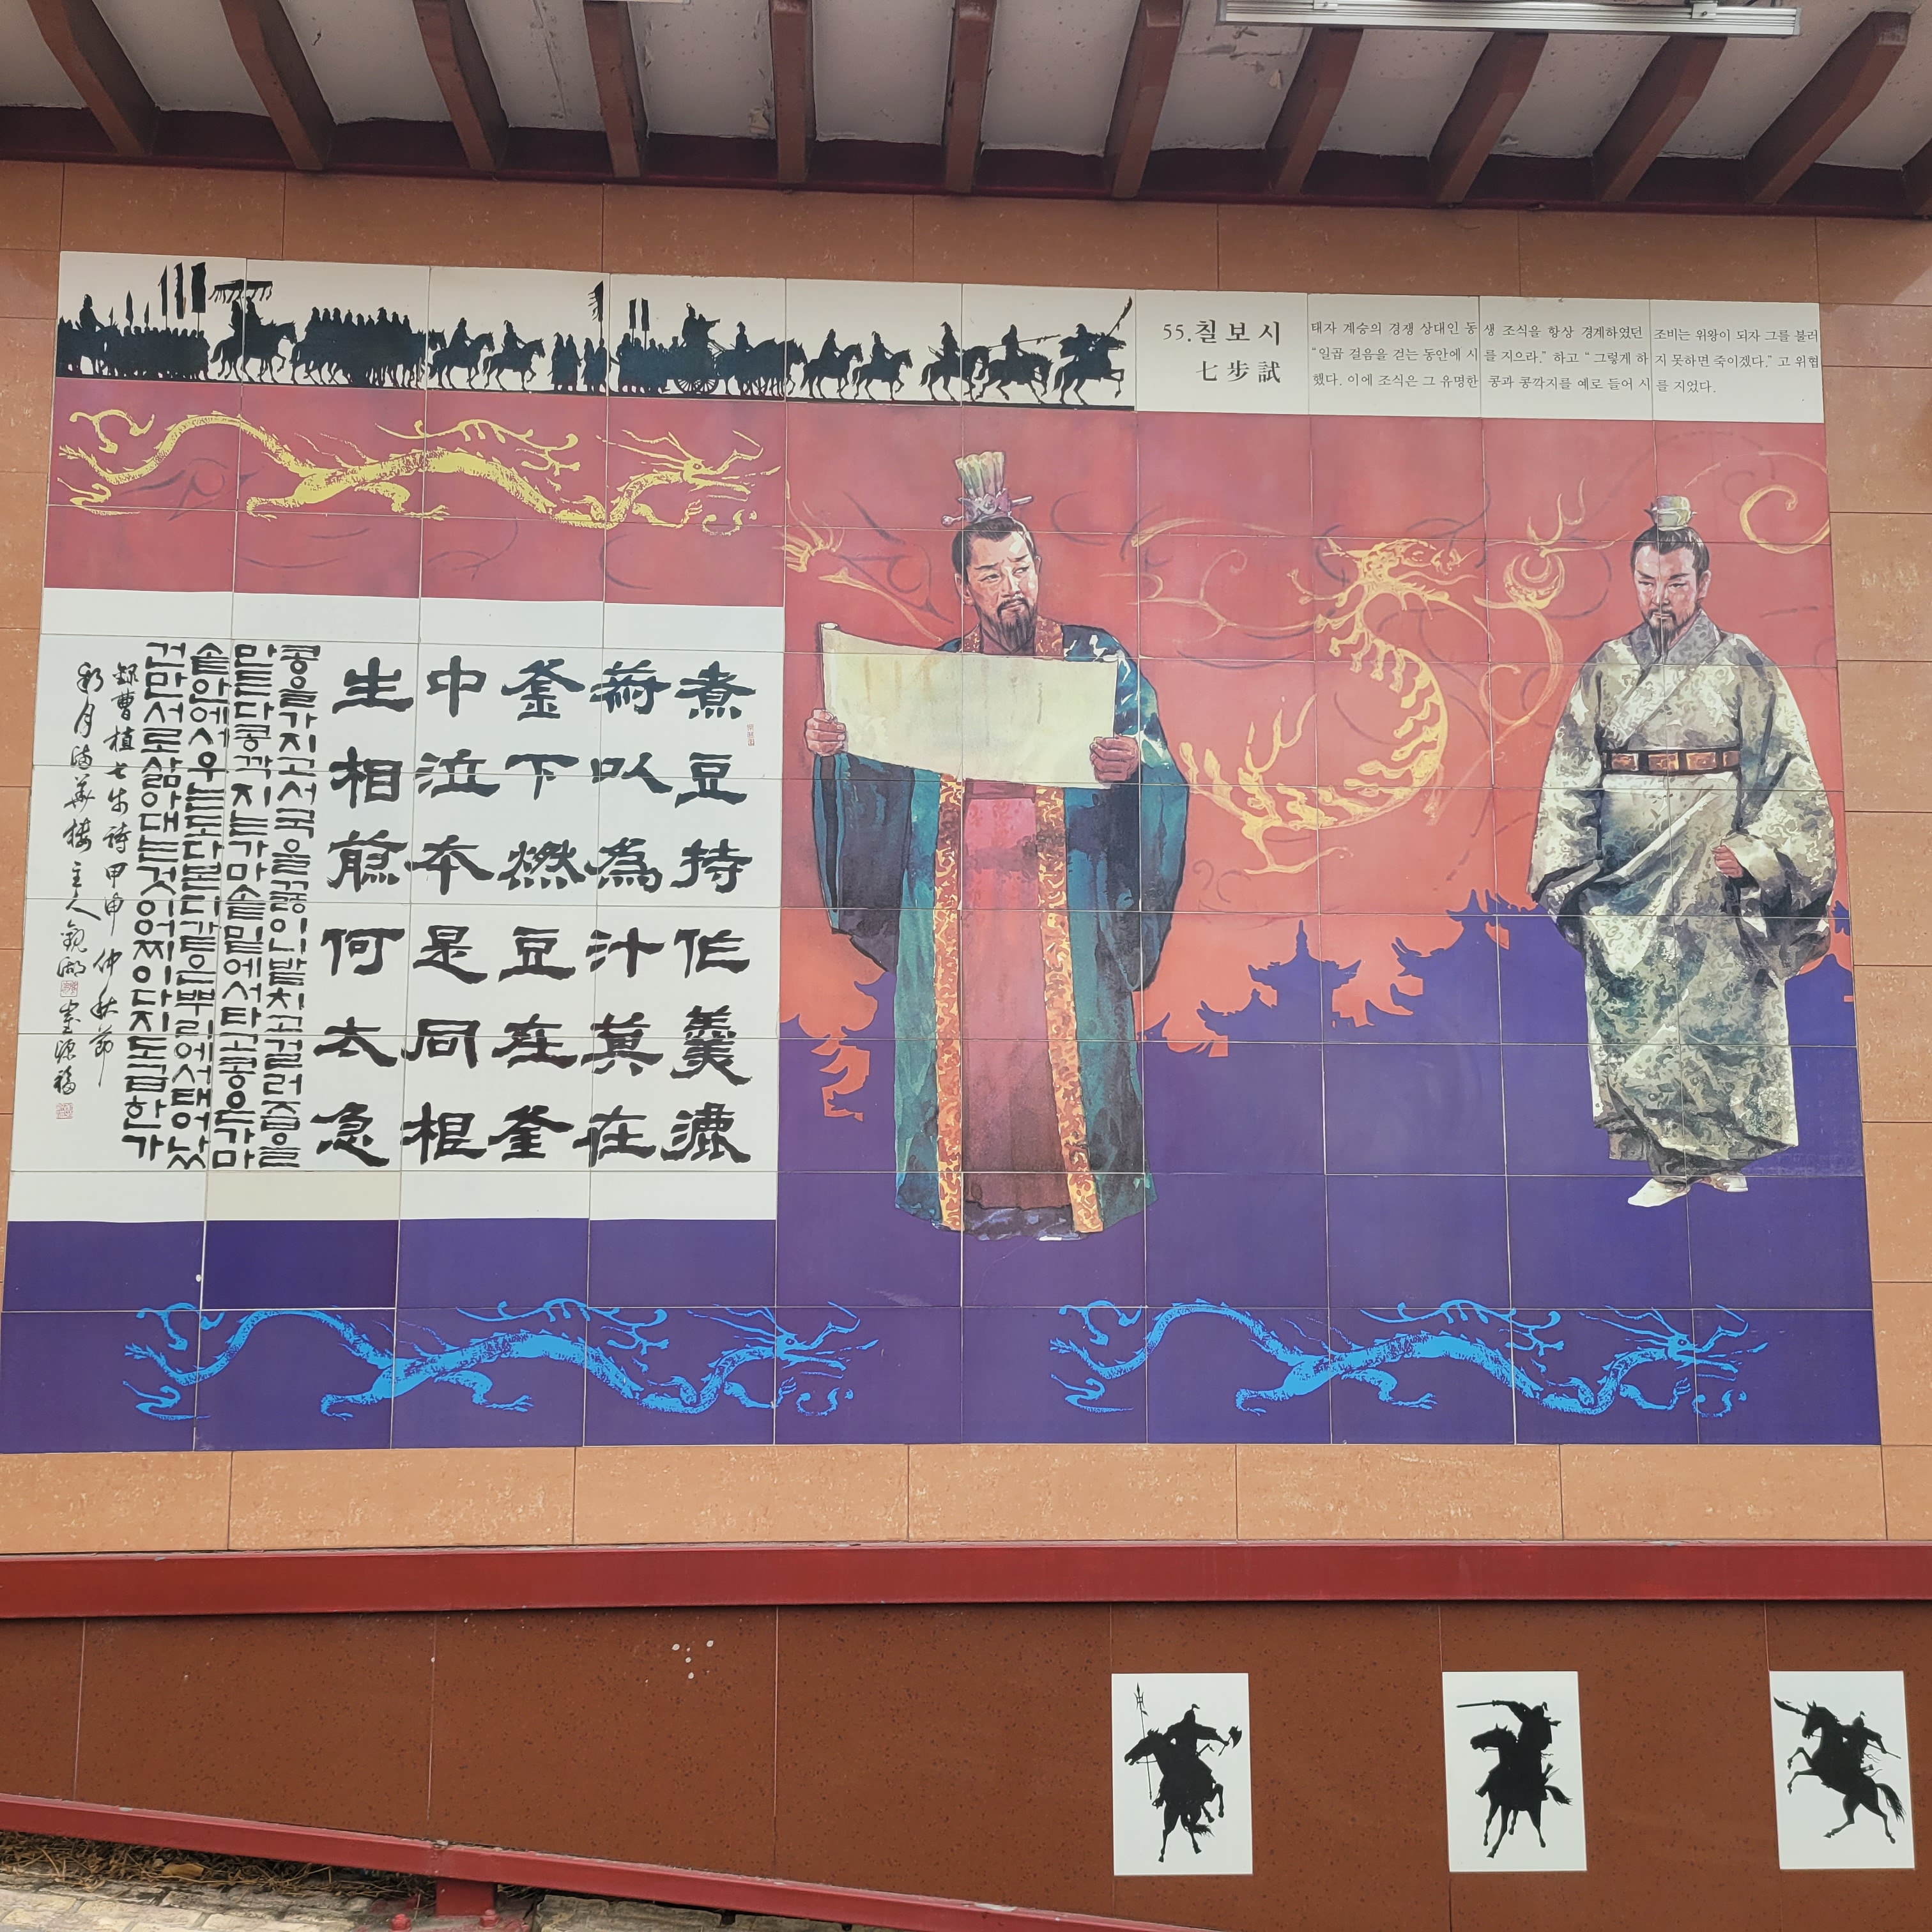 55.칠 보 시
七 步 試
태자 계승의 경쟁 상대인 동생 조식을 항상 경계하였던 조비는 위왕이 되자 그를 불러
“일곱 걸음을 걷는 동안에 시를 지으라.” 하고 “ 그렇게 하지 못하면 죽이겠다.” 고 위협
했다. 이에 조식은 그 유명한 콩과 콩깍지를 예로 들어 시를 지었다.
煮豆持作羹漉
以為汁萁在
釜下燃豆在釜
中泣本是同根
生相煎何太急
콩을가지고서국을끓이니발치고걸러즙을
만든다콩깍지는가마솥밑에서타고콩은가마
솥안에서우는도다본디같은뿌리에서태어났
건만서로삶아대는것이어찌이다지도급한가
錄曹植七步詩甲申仲秋節
樓主人觀湖